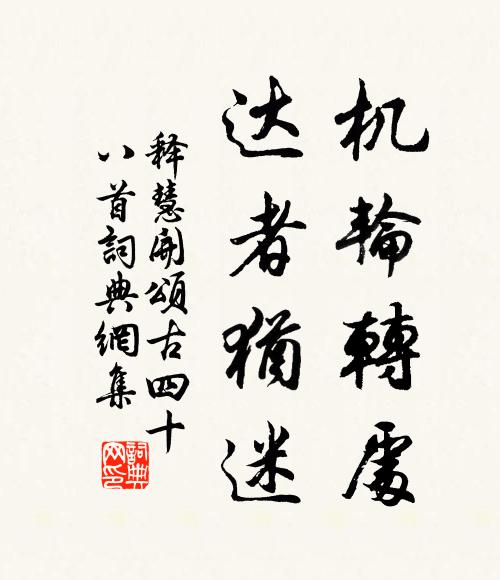 机輪轉處
达者猶迷
释慧開頌古四十
八首詞典網集
詞典
网印